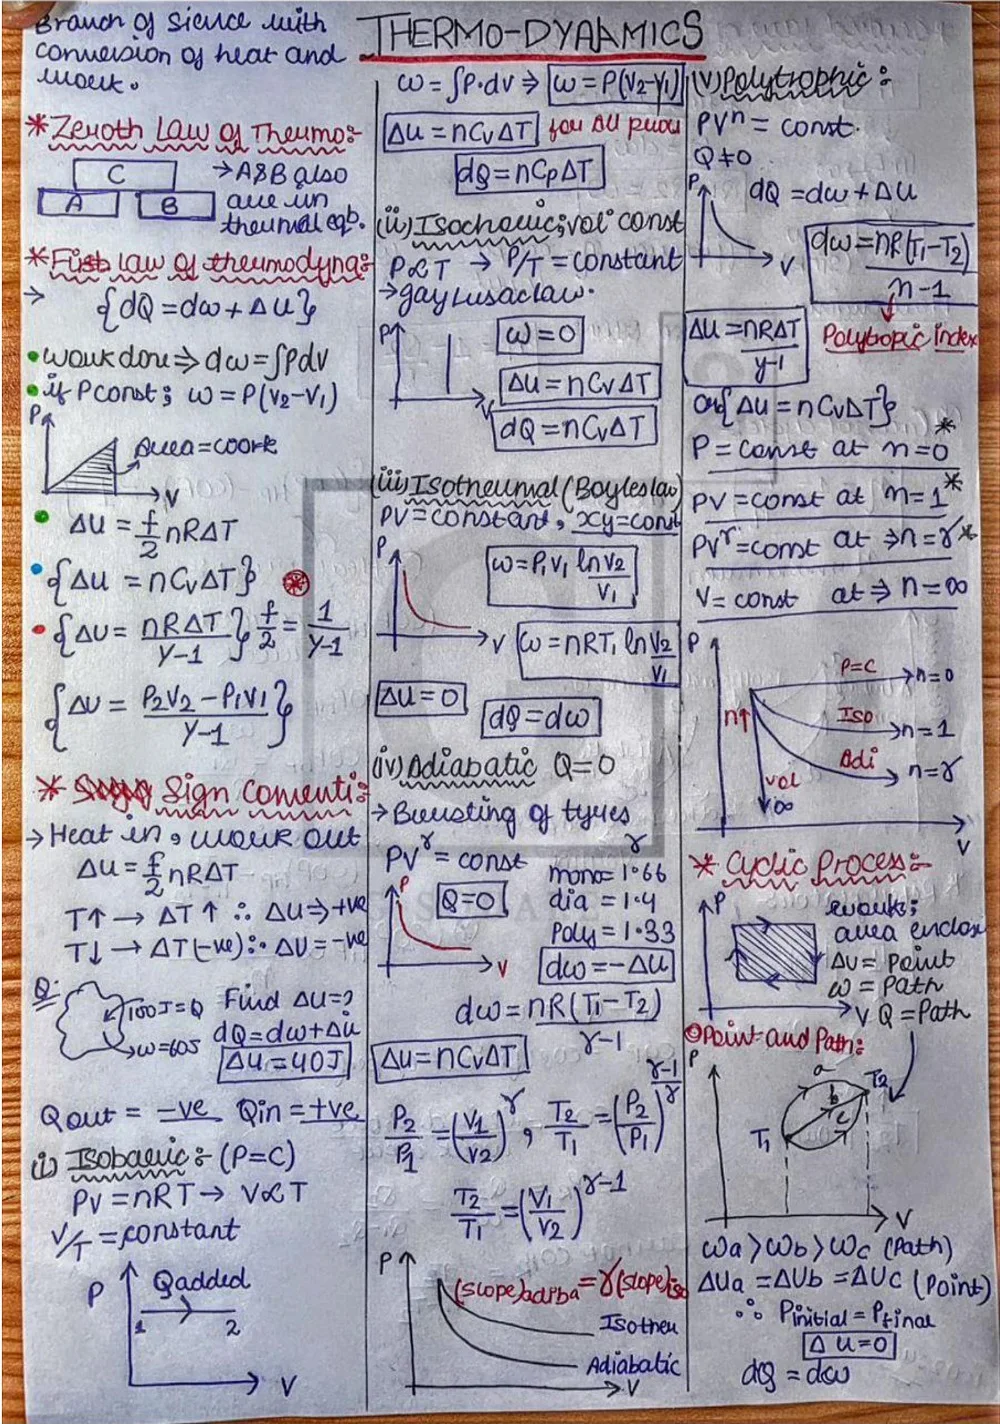 THERMO-DYAAMICS
Branch of sience with
conversion of heat and
work.
*Zeroth Law of Thermo:-
C
A B
→A&B also
are in
thermal eqb.
*First law of thermodyna:-
→ {dQ = dω + ΔU}
•work done ⇒ dω = ∫pdv
•if P const; ω = P(V₂-V₁)
P
Area = work
V
ΔU = f/2 nRΔT
•{ΔU = nCvΔT}
•{ΔU = nRΔT/γ-1} f/2 = 1/γ-1
{ΔU = P₂V₂ - P₁V₁/γ-1}
* Sign Conventi:-
→Heat in, work out
ΔU = f/2 nRΔT
T↑ → ΔT↑ ∴ ΔU ⇒ +ve
T↓ → ΔT(-ve) ∴ ΔU = -ve
Q:
100J = Q
→ω = 60J
Find ΔU = ?
dQ = dω + Δu
ΔU = 40J
Qout = -ve Qin = +ve
(i) Isobaric:- (P=C)
PV = nRT → V∝T
V/T = constant
P
Qadded
1 2
V
ω = ∫P·dv ⇒ ω = P(V₂-V₁)
ΔU = nCvΔT for all process
dQ = nCpΔT
(ii) Isochoric; vol const
P∝T → P/T = constant
→gay lusac law.
P
V
ω = 0
ΔU = nCvΔT
dQ = nCvΔT
(iii) Isothermal (Boyles law)
PV = constant, xy = const
P
V
ω = P₁V₁ ln V₂/V₁
ω = nRT₁ ln V₂/V₁
ΔU = 0
dQ = dω
(iv) Adiabatic Q=0
→Bursting of tyres
PV^γ = const
P
V
Q=0
γ
mono = 1.66
dia = 1.4
Poly = 1.33
dω = -ΔU
dω = nR(T₁-T₂)/γ-1
ΔU = nCvΔT
P₂/P₁ = (V₁/V₂)^γ, T₂/T₁ = (P₂/P₁)^γ-1/γ
T₂/T₁ = (V₁/V₂)^γ-1
P
(slope)adiba = γ(slope)iso
Isother
Adiabatic
V
(v) Polytrophic:-
PVⁿ = const.
Q≠0
P
V
dQ = dω + ΔU
dω = nR(T₁-T₂)/n-1
Polytropic index
ΔU = nRΔT/γ-1
or {ΔU = nCvΔT}
P = const at n=0*
PV = const at n=1*
PV^γ = const at ⇒ n=γ*
V = const at ⇒ n=∞
P
P=C n=0
n↑
Iso n=1
Adi n=γ
vol
∞
V
* Cyclic Process:-
P
V
work;
area enclos
ΔU = Point
ω = Path
Q = Path
Point and Path:-
P
a
b
c
T₁
T₂
V
ωa > ωb > ωc (Path)
ΔUa = ΔUb = ΔUc (Point)
∴ Pinitial = Pfinal
ΔU=0
dQ = dω